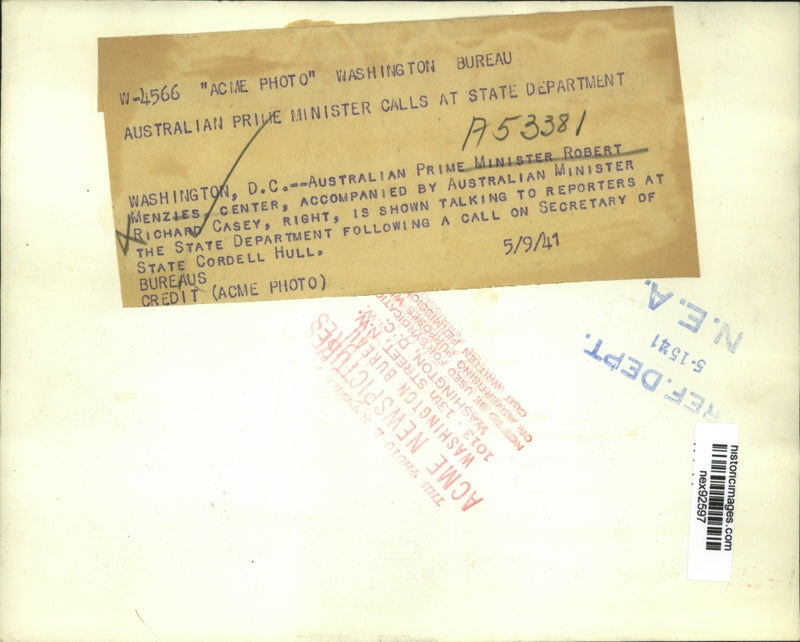 W-4566 "ACME PHOTO" WASHINGTON BUREAU
AUSTRALIAN PRIME MINISTER CALLS AT STATE DEPARTMENT
A53381
WASHINGTON, D.C.--AUSTRALIAN PRIME MINISTER ROBERT
MENZIES, CENTER, ACCOMPANIED BY AUSTRALIAN MINISTER
RICHARD CASEY, RIGHT, IS SHOWN TALKING TO REPORTERS AT
THE STATE DEPARTMENT FOLLOWING A CALL ON SECRETARY OF
STATE CORDELL HULL.
BUREAUS
CREDIT (ACME PHOTO) 5/9/41
THIS PHOTO IS
ACME NEWSPICTURES
WASHINGTON BUREAU
1013 - 13th STREET, N.W.
WASHINGTON, D. C.
NOT TO BE USED FOR SYNDICATION
OR ADVERTISING PURPOSES
OUT WRITTEN
REF. DEPT.
5-1541
N.E.A.
historicimages.com
nex92597